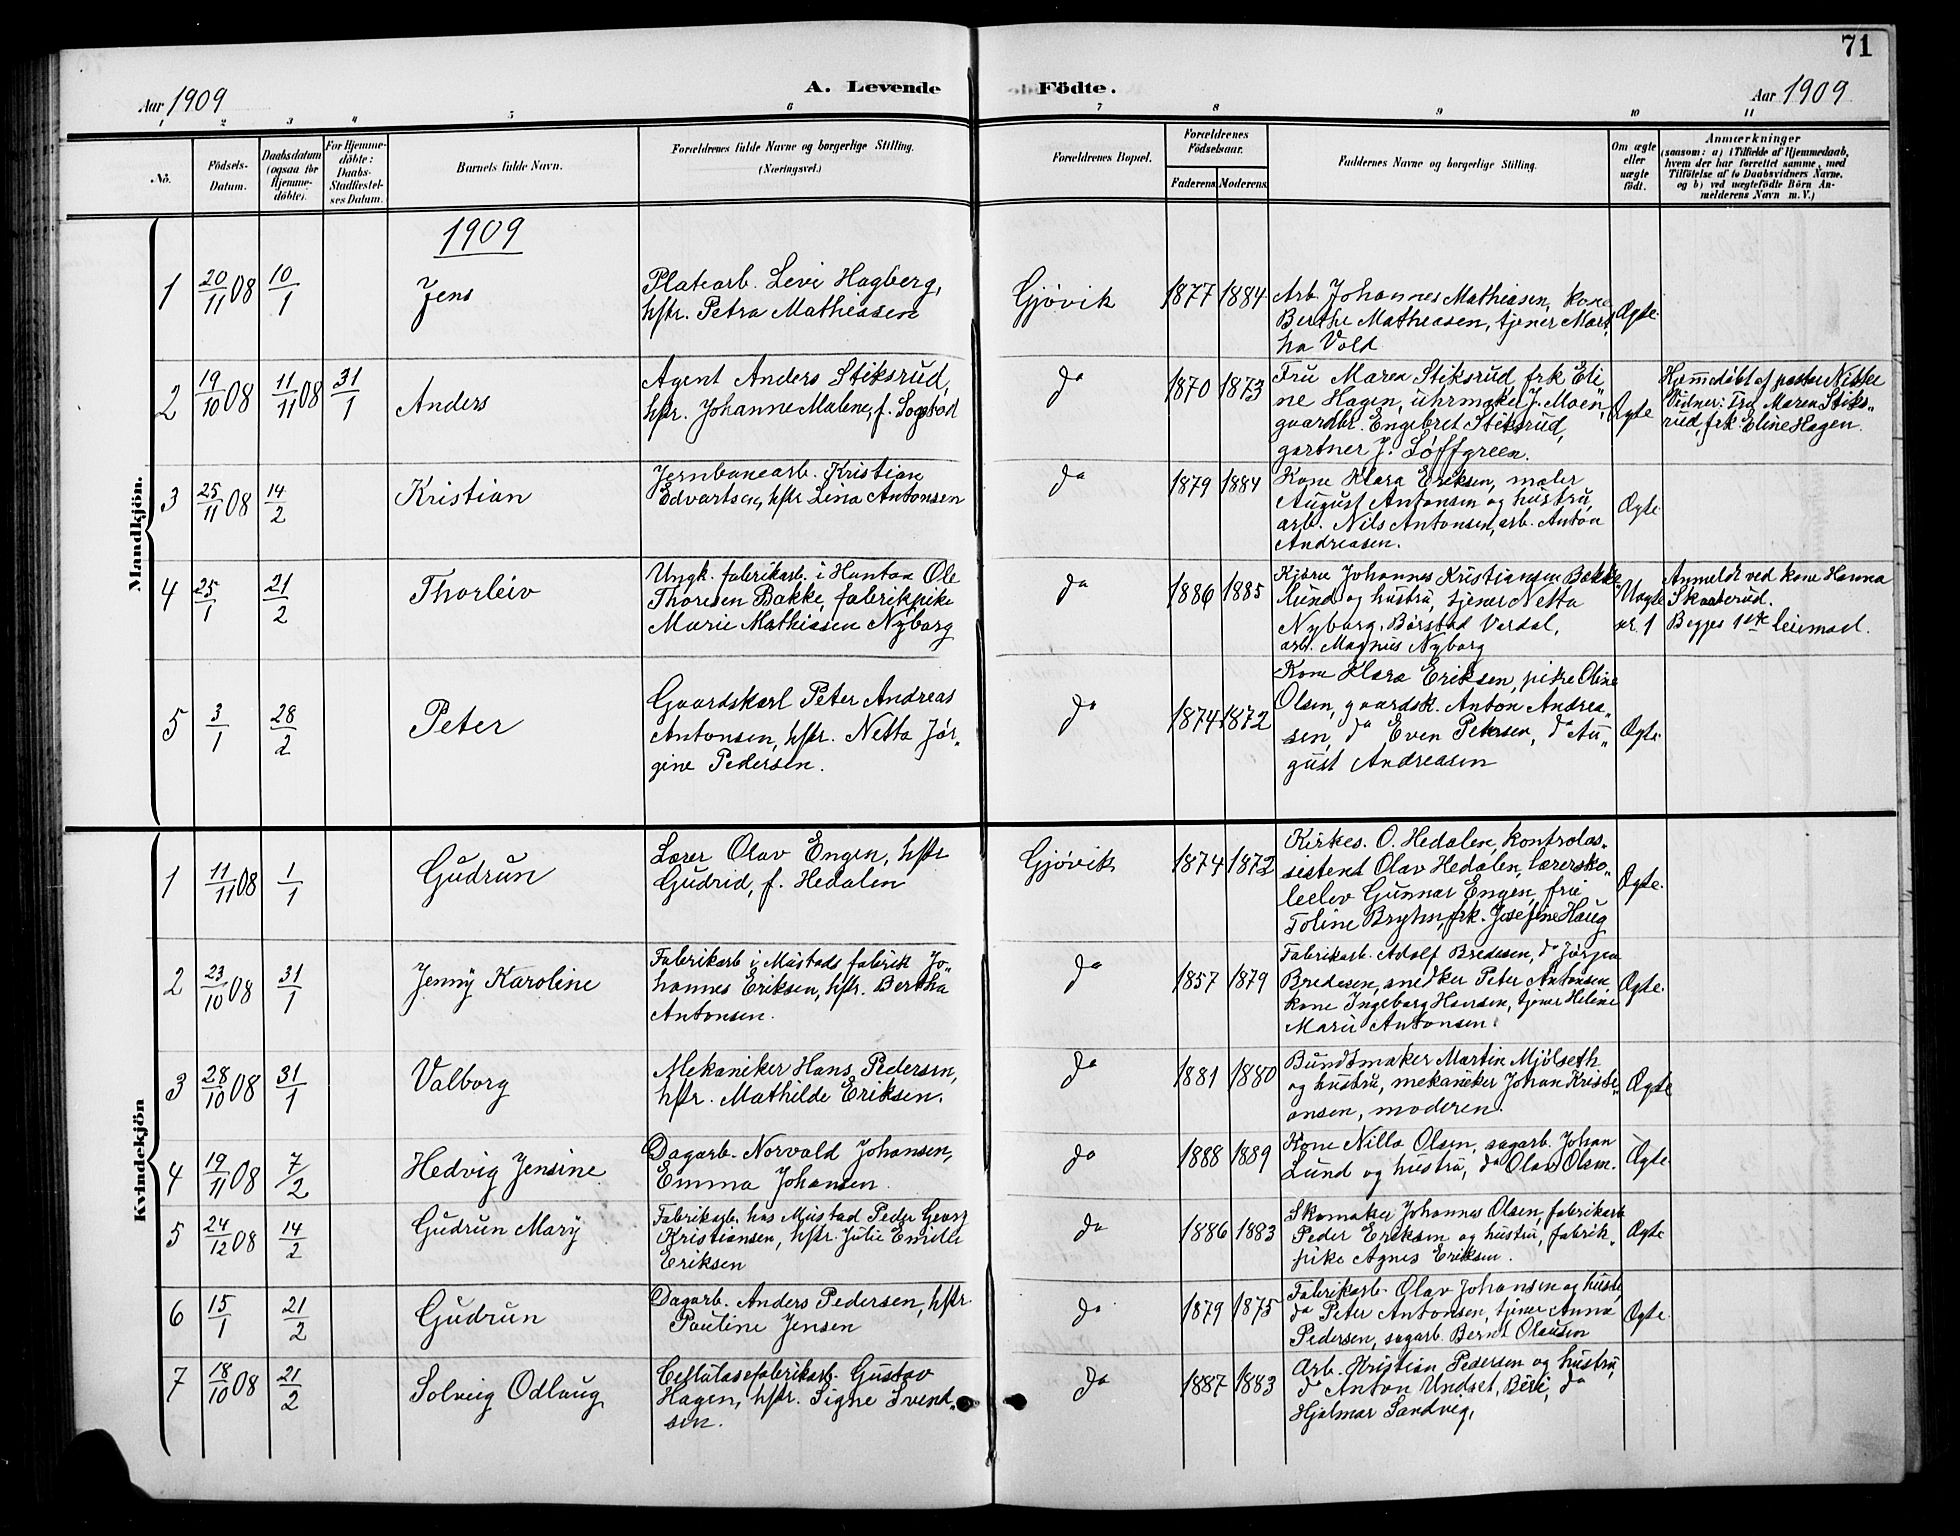 71
Aar 1909
A. Levende
Födte.
Aar 1909
1 2 3 4 5 6 7 8 9 10 11
No.
Födsels-
Datum.
Daabsdatum
(ogsaa for
Hjemme-
döbte).
For Hjemme-
döbte:
Daabs-
Stadfæstel-
ses Datum.
Barnets fulde Navn.
Forældrenes fulde Navne og borgerlige Stilling.
(Næringsvei.)
Forældrenes Bopæl.
Forældrenes
Födselsaar.
Faderens. Moderens.
Faddernes Navne og borgerlige Stilling.
Om ægte
eller
uægte
født.
Anmærkninger
(saasom: a) i Tilfælde af Hjemmedaab,
hvem der har forrettet samme, med
Tilføielse af to Daabsvidners Navne.
og b) ved uægtefödte Börn An-
melderens Navn m. V.)
1909
Mandkjön.
1 20/11 08 10/1 Jens
Platearb. Levi Hagberg,
hstr. Petra Mathiasen
Gjøvik 1877 1884
Arb. Johannes Mathiasen, kone
Berthe Mathiasen, tjener Mart
ha Vold
Ægte.
2 19/10 08 11/11 08 31/1 Anders
Agent Anders Stiksrud,
hstr. Johanne Malene, f. Sogstad
do 1870 1873
Fru Maren Stiksrud, frk Eli„
ne Hagen, uhrmaker J. Moen,
gaardbr. Engebret Stiksrud,
gartner J. Løffgreen.
Ægte
Hjemmedøbt af pastor Nisse
Vidner: Fru Maren Stiks„
rud, frk. Eline Hagen.
3 25/11 08 14/2 Kristian
Jernbanearb. Kristian
Edvartsen, hstr Lina Antonsen
do 1879 1884
Kone Klara Eriksen, maler
August Antonsen og hustru,
arb. Nils Antonsen, arb. Anton
Andreasen.
Ægte.
4 25/1 21/2 Thorleiv
Ungk. fabrikarb. i Hunton Ole
Thoresen Bakke, fabrikpike
Marie Mathiasen Nyborg
do 1886 1885
Johannes Kristiansen Bakke
lund og hustru, tjener Netta
Nyborg, Verdal,
arb. Magnus Nyborg
Uægte
nr. 1
Anmeldt ved kone Hanna
Skaaterud.
Begges 1ste leiermaal.
5 3/1 28/2 Peter
Gaardskarl Peter Andreas
Antonsen, hstr. Netta Jør„
gine Pedersen.
do 1874 1872
Kone Klara Eriksen, pike Oline
Olsen, gaardsk. Anton Andrea„
sen, do Even Petersen, do Au„
gust Andreasen
Ægte.
Kvindekjön
1 11/11 08 1/1 Gudrun
Lærer Olav Engen, hstr
Gudrid, f. Hedalen
Gjøvik 1874 1872
Kirkes. O. Hedalen, kontrolas„
sistent Olav Hedalen, lærersko„
leelev Gunnar Engen, fru
Toline Bryhn, frk. Josefine Haug
Ægte.
2 23/10 08 31/1 Jenny Karoline
Fabrikarb i Mustads fabrik Jo„
hannes Eriksen, hstr. Bertha
Antonsen.
do 1857 1879
Fabrikarb. Adolf Bredesen, do Jørgen
Bredesen, snedker Peter Antonsen
kone Ingeborg Hansen, tjener Heline
Marie Antonsen.
Ægte.
3 28/10 08 31/1 Valborg
Mekaniker Hans Pedersen,
hstr. Mathilde Eriksen.
do 1881 1880
Bundtmaker Martin Mjølseth
og hustru, mekaniker Johan Kristi„
ansen, moderen.
Ægte
4 19/11 08 7/2 Hedvig Jensine
Dagarb. Norvald Johansen,
Emma Johansen
do 1888 1889
Kone Nilla Olsen, sagarb. Johan
Lund og hustru, do Olav Olsen.
Ægte.
5 24/12 08 14/2 Gudrun Mary
Fabrikarb. hos Mustad Peder Georg
Kristiansen, hstr. Julie Emilie
Eriksen
do 1886 1883
Skomaker Johannes Olsen, fabrikarb
Peder Eriksen og hustru, fabrik„
pike Agnes Eriksen.
Ægte
6 15/1 21/2 Gudrun
Dagarb. Anders Pedersen, hstr
Pauline Jensen
do 1879 1875
Fabrikarb. Olav Johansen og hustr
do Peter Antonsen, tjener Anna
Pedersen, sagarb. Bernt Olausen
Ægte.
7 18/10 08 21/2 Solveig Odlaug
Cellulosefabrikarb. Gustav
Hagen, hstr. Signe Svend„
sen.
do 1887 1883
Arb. Kristian Pedersen og hustru,
do Anton Undset, Biri, do
Hjalmar Sandvig,